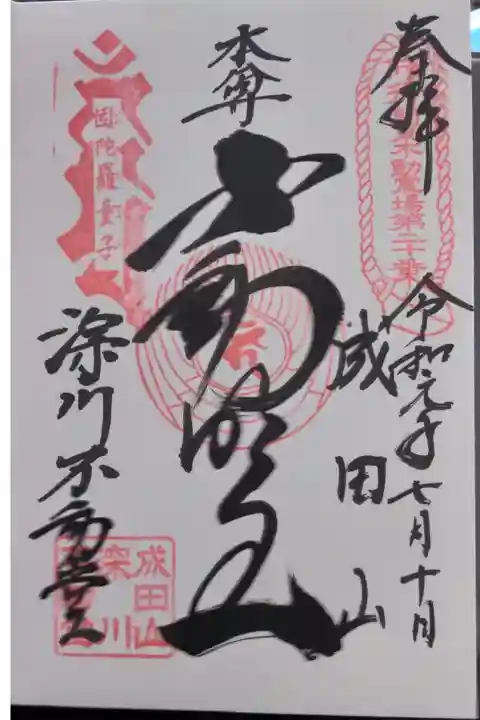 奉拝
不動霊場第二十番
令和元年七月十日
成田山
本尊
不動明王
因陀羅童子
深川不動堂
成田山
深川